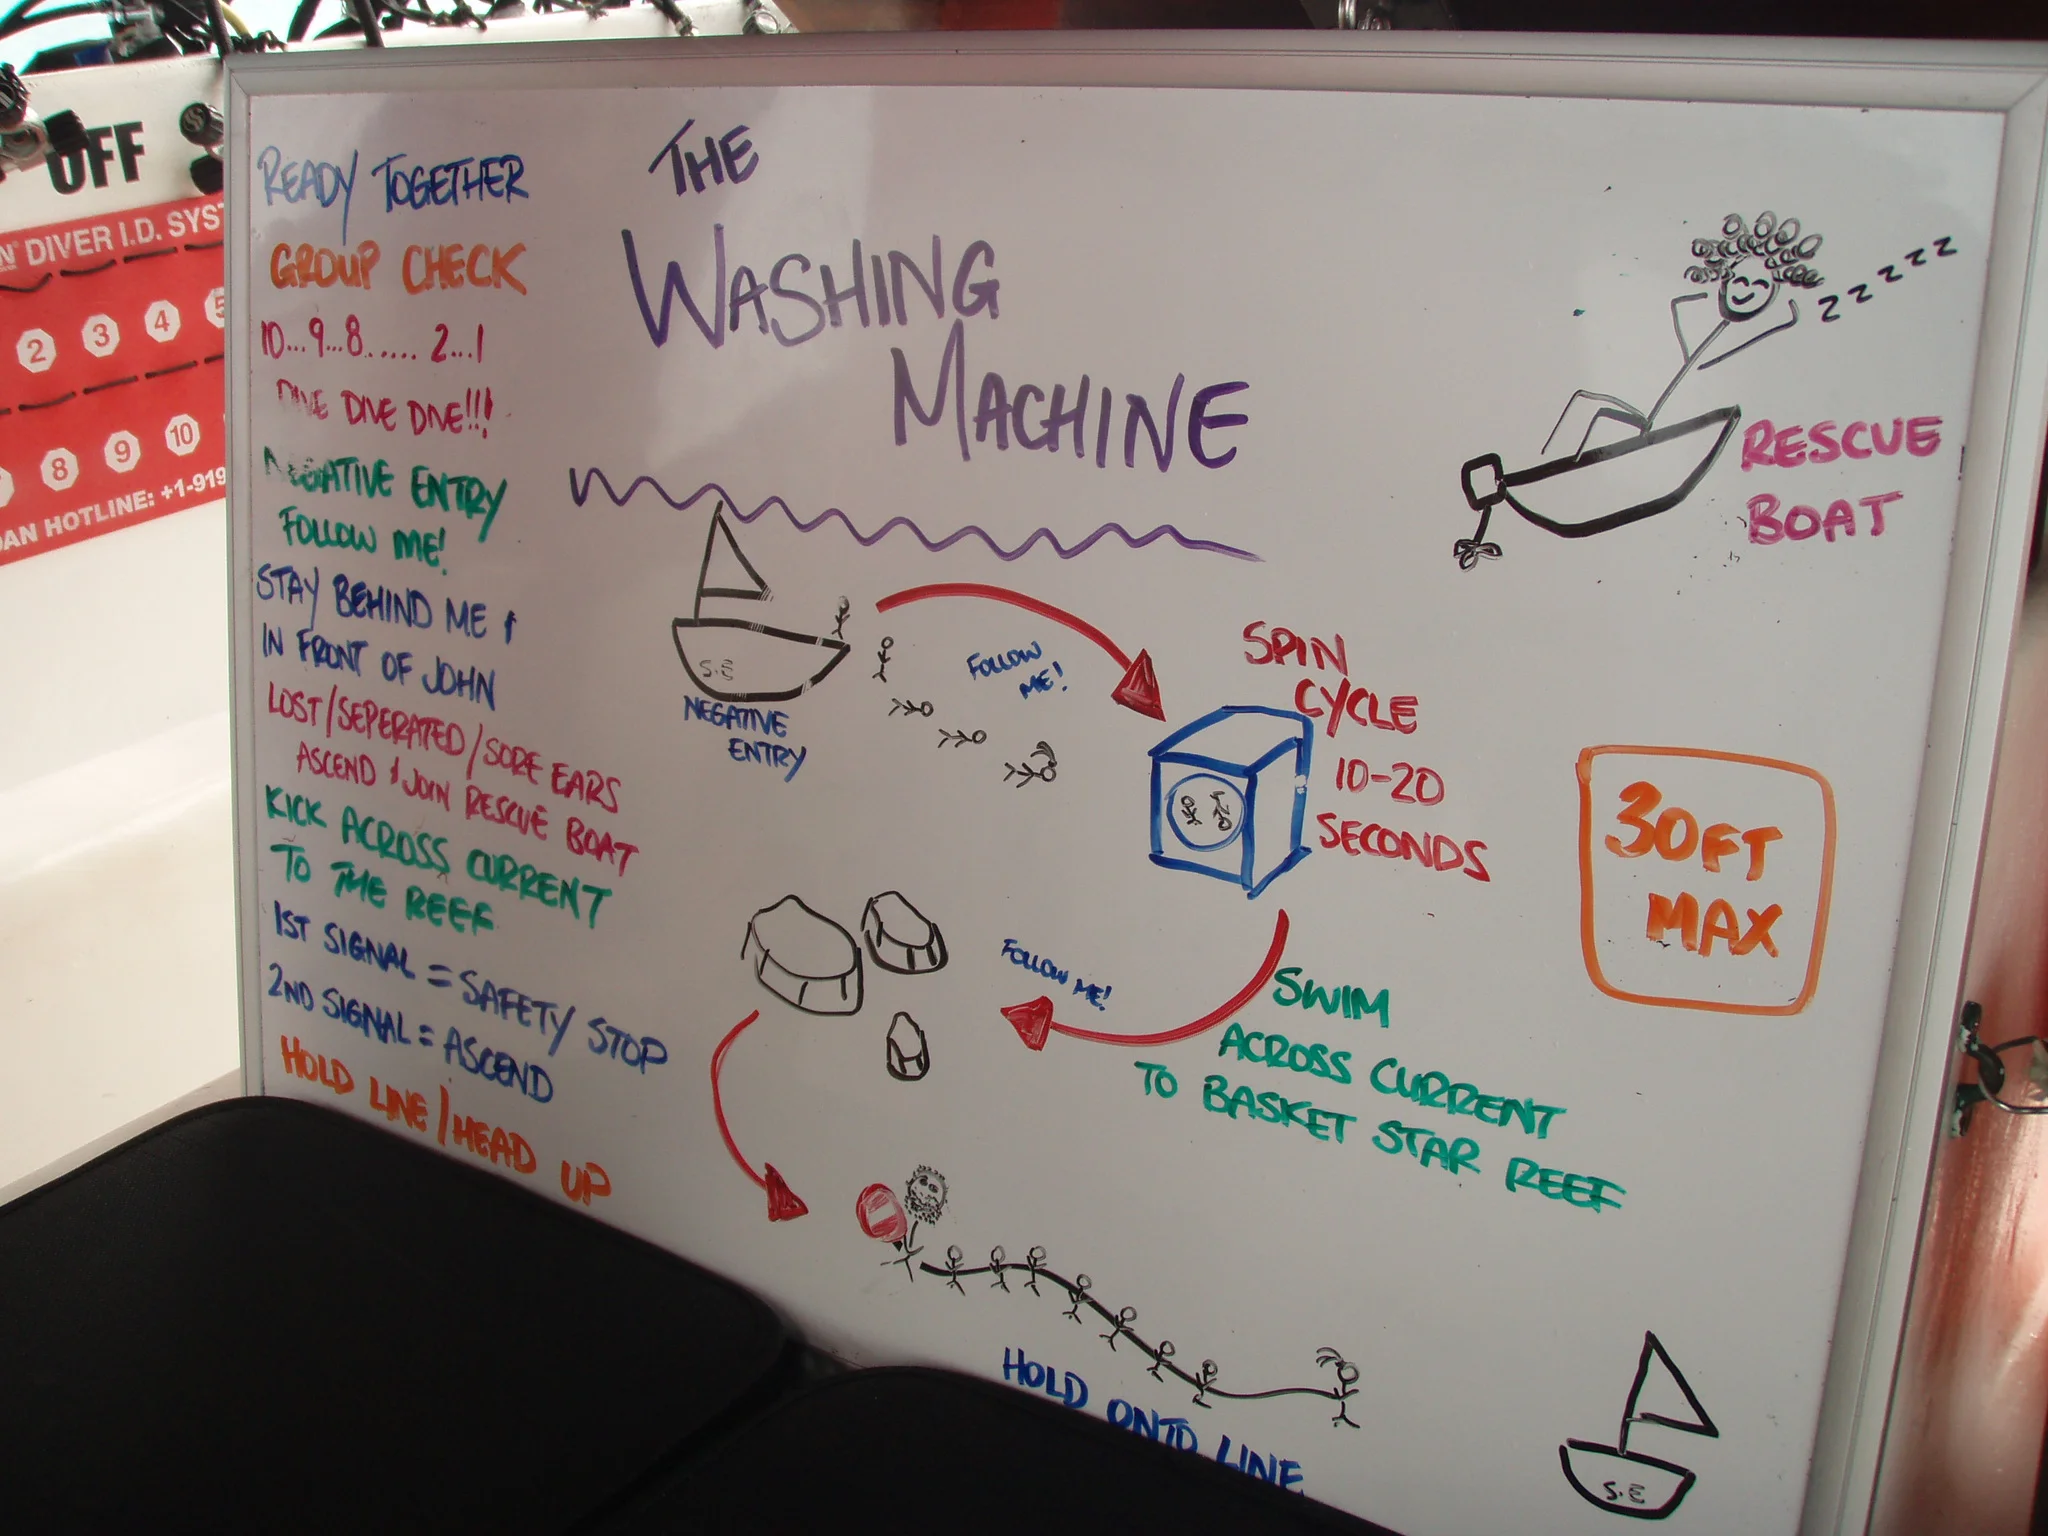 OFF
DIVER I.D. SYST
2 3 4 5
8 9 10
DAN HOTLINE: +1-919
READY TOGETHER
GROUP CHECK
10...9...8...... 2...1
DIVE DIVE DIVE!!!
NEGATIVE ENTRY
FOLLOW ME!
STAY BEHIND ME &
IN FRONT OF JOHN
LOST/SEPERATED/SORE EARS
ASCEND & JOIN RESCUE BOAT
KICK ACROSS CURRENT
TO THE REEF
1ST SIGNAL = SAFETY STOP
2ND SIGNAL = ASCEND
HOLD LINE/HEAD UP
THE
WASHING
MACHINE
ZZZZZZ
RESCUE
BOAT
S.E
NEGATIVE
ENTRY
FOLLOW
ME!
SPIN
CYCLE
10-20
SECONDS
30FT
MAX
FOLLOW ME!
SWIM
ACROSS CURRENT
TO BASKET STAR REEF
HOLD ONTO LINE
S.E